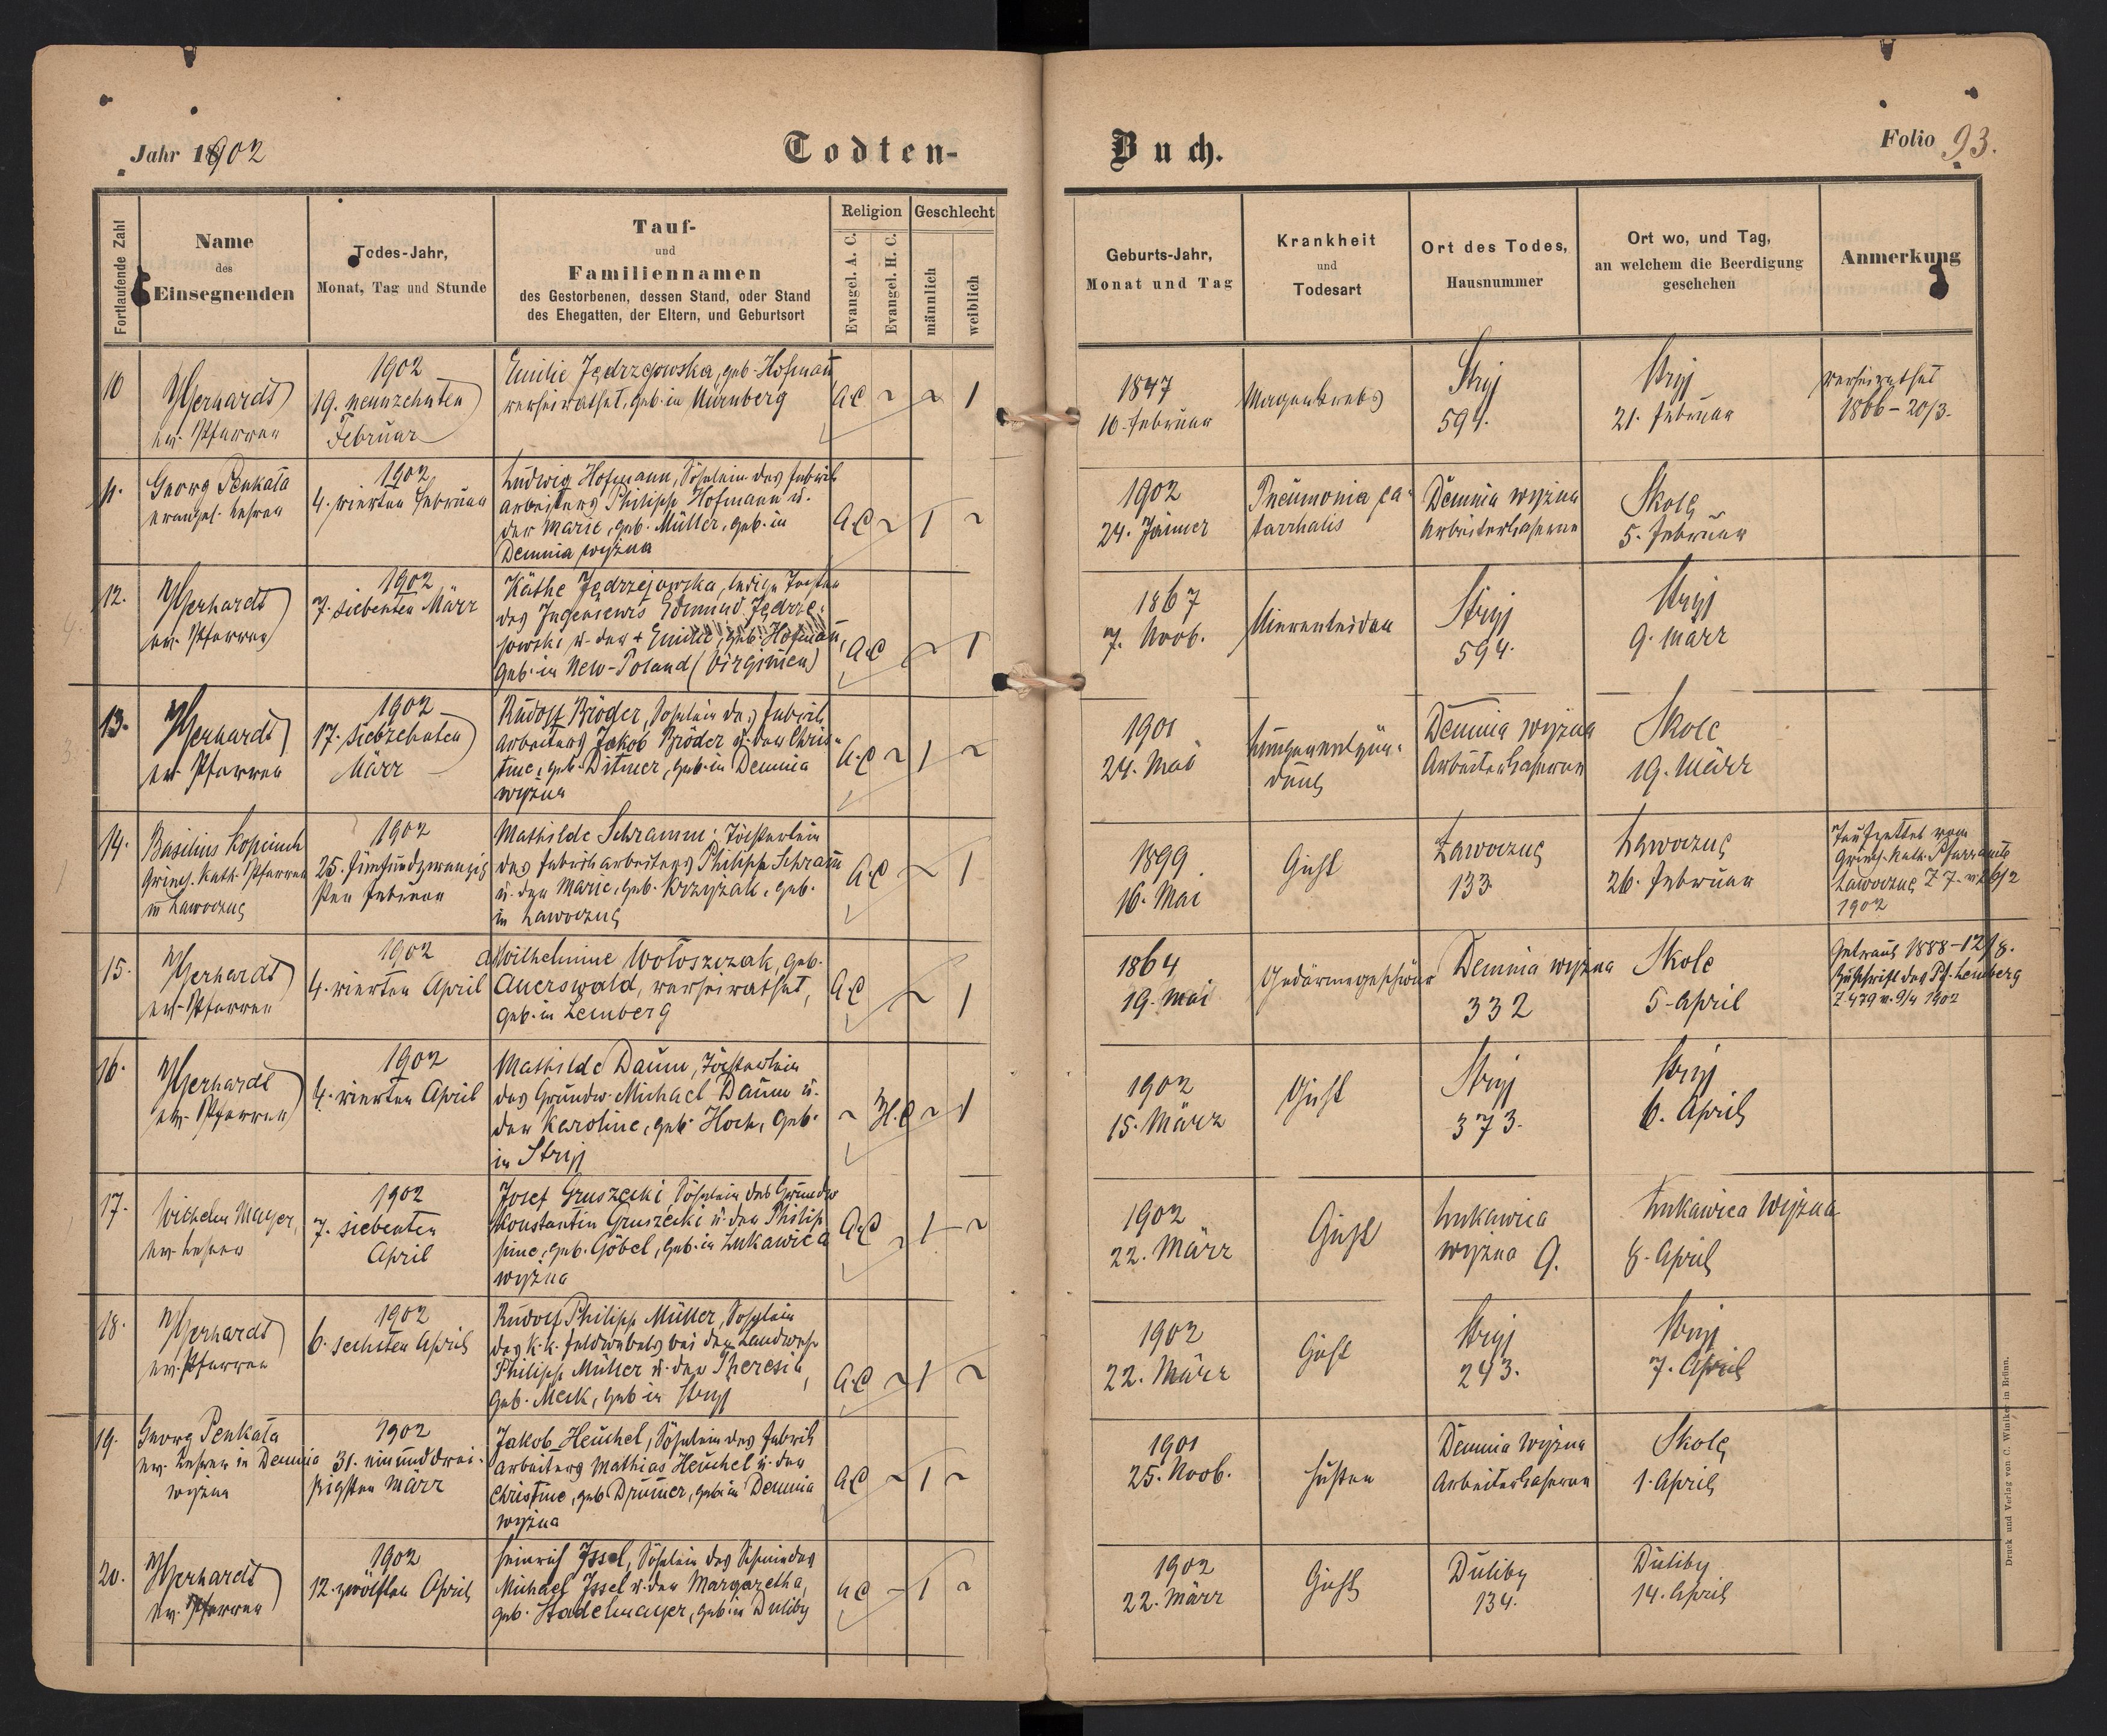 Jahr 1902
Todten-
Buch.
Folio 93.
Fortlaufende Zahl
Name
des
Einsegnenden
Todes-Jahr,
Monat, Tag und Stunde
Tauf-
und
Familiennamen
des Gestorbenen, dessen Stand, oder Stand
des Ehegatten, der Eltern, und Geburtsort
Religion
Evangel. A. C.
Evangel. H. C.
Geschlecht
männlich
weiblich
Geburts-Jahr,
Monat und Tag
Krankheit
und
Todesart
Ort des Todes,
Hausnummer
Ort wo, und Tag,
an welchem die Beerdigung
geschehen
Anmerkung
10
Gerhardt
ev. Pfarrer
1902
19. neunzehnten
Februar
Emilie Jędrzejowska, geb. Hofmann
verheirathet, geb. in Nürnberg
A.C ~ ~ 1
1847
10. Februar
Magenkrebs
Stryj
594.
Stryj
21. Februar
verheirathet
1866 - 20/3.
11.
Georg Penkala
evangel. Lehrer
1902
4. vierten Februar
Ludwig Hofmann, Söhnlein des Fabrik
arbeiters Philipp Hofmann u.
der Marie, geb. Müller, geb. in
Demnia wyżna
A.C ~ 1 ~
1902
24. Jänner
Pneumonia ca-
tarrhalis
Demnia wyżna
Arbeiterkaserne
Skole
5. Februar
12.
Gerhardt
ev. Pfarrer
1902
7. siebenten März
Käthe Jędrzejowska, ledige Tochter
des Ingenieurs Edmund Jędrze-
jowski u. der + Emilie, geb. Hofmann,
geb. in New-Poland (Virginien)
A.C ~ 1
1867
7. Novb.
Nierenleiden
Stryj
594.
Stryj
9. März
13.
Gerhardt
ev. Pfarrer
1902
17. siebzehnten
März
Rudolf Bröder, Söhnlein des Fabrik
arbeiters Jakob Bröder u. der Chris-
tine, geb. Ditmer, geb. in Demnia
wyżna
A.C ~ 1 ~
1901
24. Mai
Lungenentzün-
dung
Demnia wyżna
Arbeiterkaserne
Skole
19. März
14.
Basilius Kopciuch
Griech. kath. Pfarrer
in Ławoczne
1902
25. fünfundzwanzig
sten Februar
Mathilde Schramm, Töchterlein
des Fabrikarbeiters Philipp Schramm
u. der Marie, geb. Krzyżak, geb.
in Ławoczne
A.C ~ 1
1899
16. Mai
Gicht
Ławoczne
133
Ławoczne
26. Februar
Taufzettel vom
Griech. kath. Pfarramte
Ławoczne Z 7. v. 26/2
1902
15.
Gerhardt
ev. Pfarrer
1902
4. vierten April
Wilhelmine Wołoszczak, geb.
Auerswald, verheirathet,
geb. in Lemberg
A.C ~ 1
1864
19. Mai
Gedärmegeschwür
Demnia wyżna
332
Skole
5. April
Getraut 1888 - 12/8.
Zuschrift des Pf. Lemberg
Z 479 v. 9/4 1902
16.
Gerhardt
ev. Pfarrer
1902
4. vierten April
Mathilde Daum, Töchterlein
des Grundw. Michael Daum u.
der Karoline, geb. Hoch, geb.
in Stryj
~ H.C ~ 1
1902
15. März
Gicht
Stryj
373.
Stryj
6. April
17.
Wilhelm Mayer,
ev. Lehrer
1902
7. siebenten
April
Josef Gruszecki, Söhnlein des Grundw
Konstantin Gruszecki u. der Philip
pine, geb. Göbel, geb. in Łukawica
wyżna
A.C ~ 1 ~
1902
22. März
Gicht
Łukawica
wyżna 9.
Łukawica wyżna
8. April
18.
Gerhardt
ev. Pfarrer
1902
6. sechsten April
Rudolf Philipp Müller, Söhnlein
des k. k. Feldwebels bei der Landwehr
Philipp Müller u. der Theresia,
geb. Meck, geb. in Stryj
A.C ~ 1 ~
1902
22. März
Gicht
Stryj
243.
Stryj
7. April
19.
Georg Penkala
ev. Lehrer in Demnia
wyżna
1902
31. einunddrei-
ßigsten März
Jakob Heuchel, Söhnlein des Fabrik
arbeiters Mathias Heuchel u. der
Christine, geb. Drummer, geb. in Demnia
wyżna
A.C ~ 1 ~
1901
25. Novb.
Husten
Demnia wyżna
Arbeiterkaserne
Skole
1. April
20.
Gerhardt
ev. Pfarrer
1902
12. zwölften April
Heinrich Issel, Söhnlein des Schmiedes
Michael Issel u. der Margaretha,
geb. Stadelmayer, geb. in Duliby
A.C ~ 1 ~
1902
22. März
Gicht
Duliby
134.
Duliby
14. April
Druck und Verlag von C. Winiker in Brünn.